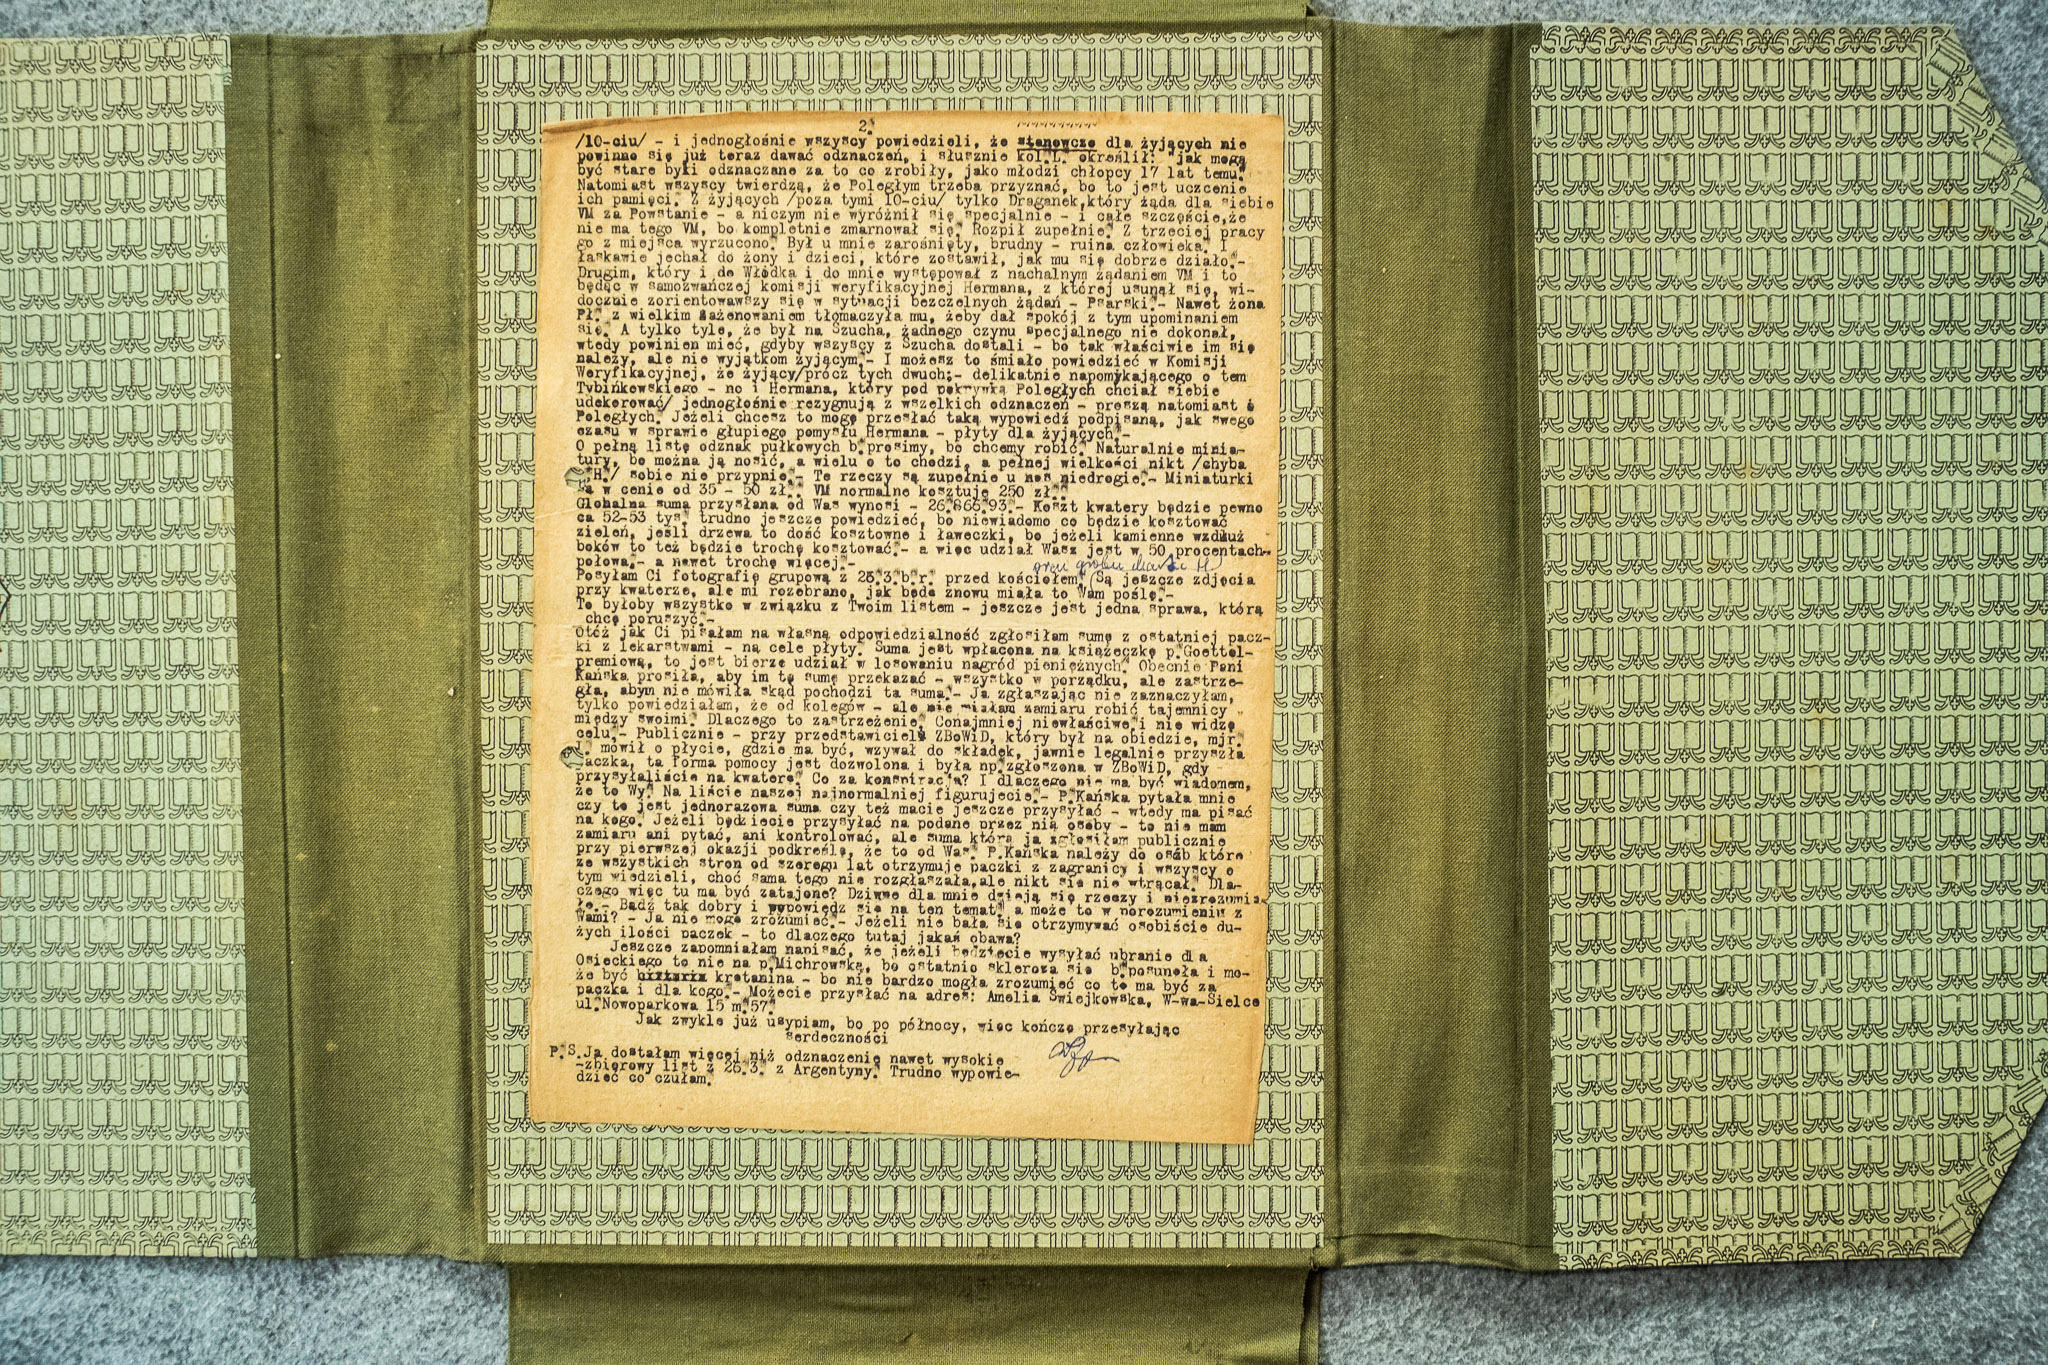 2.
/10-ciu/ - i jednogłośnie wszyscy powiedzieli, że stanowczo dla żyjących nie
powinno się już teraz dawać odznaczeń, i słusznie kol.L. określił: "jak mogą
być stare byki odznaczane za to co zrobiły, jako młodzi chłopcy 17 lat temu".
Natomiast wszyscy twierdzą, że Poległym trzeba przyznać, bo to jest uczcenie
ich pamięci. Z żyjących /poza tymi 10-ciu/ tylko Draganek,który żąda dla siebie
VM za Powstanie - a niczym nie wyróżnił się specjalnie - i całe szczęście,że
nie ma tego VM, bo kompletnie zmarnował się. Rozpił zupełnie. Z trzeciej pracy
go z miejsca wyrzucono. Był u mnie zarośnięty, brudny - ruina człowieka. I
łaskawie jechał do żony i dzieci, które zostawił, jak mu się dobrze działo.-
Drugim, który i do Włódka i do mnie występował z nachalnym żądaniem VM i to
będąc w samozwańczej komisji weryfikacyjnej Hermana, z której usunął się, wi-
docznie zorientowawszy się w sytuacji bezczelnych żądań - Psarski.- Nawet żona
Pł. z wielkim zażenowaniem tłomaczyła mu, żeby dał spokój z tym upominaniem
się. A tylko tyle, że był na Szucha, żadnego czynu specjalnego nie dokonał,
wtedy powinien mieć, gdyby wszyscy z Szucha dostali - bo tak właściwie im się
należy, ale nie wyjątkom żyjącym.- I możesz to śmiało powiedzieć w Komisji
Weryfikacyjnej, że żyjący/prócz tych dwuch:- delikatnie napomykającego o tem
Tybińkowskiego - no i Hermana, który pod pokrywką Poległych chciał siebie
udekorować/ jednogłośnie rezygnują z wszelkich odznaczeń - proszą natomiast o
Poległych. Jeżeli chcesz to mogę przesłać taką wypowiedź podpisaną, jak swego
czasu w sprawie głupiego pomysłu Hermana - płyty dla żyjących.-
O pełną listę odznak pułkowych b.prosimy, bo chcemy robić. Naturalnie minia-
tury, bo można ją nosić, a wielu o to chodzi, a pełnej wielkości nikt /chyba
"H"/ sobie nie przypnie.- Te rzeczy są zupełnie u nas niedrogie.- Miniaturki
są w cenie od 35 - 50 zł. VM normalne kosztuje 250 zł.
Globalna suma przysłana od Was wynosi - 26.866.93.- Koszt kwatery będzie pewno
ca 52-53 tys. trudno jeszcze powiedzieć, bo niewiadomo co będzie kosztować
zieleń, jeśli drzewa to dość kosztowne i ławeczki, bo jeżeli kamienne wzdłuż
boków to też będzie trochę kosztować.- a więc udział Wasz jest w 50 procentach-
połowa.- a nawet trochę więcej.-
Posyłam Ci fotografię grupową z 26.3.b.r. przed kościołem. (Są jeszcze zdjęcia
przy kwaterze, ale mi rozebrano, jak będę znowu miała to Wam poślę.-
To byłoby wszystko w związku z Twoim listem - jeszcze jest jedna sprawa, którą
chcę poruszyć.-
Otóż jak Ci pisałam na własną odpowiedzialność zgłosiłam sumę z ostatniej pacz-
ki z lekarstwami - na cele płyty. Suma jest wpłacona na książeczkę p.Goettel-
premiową, to jest bierze udział w losowaniu nagród pieniężnych. Obecnie Pani
Kańska prosiła, aby im tę sumę przekazać - wszystko w porządku, ale zastrze-
gła, abym nie mówiła skąd pochodzi ta suma.- Ja zgłaszając nie zaznaczyłam,
tylko powiedziałam, że od kolegów - ale nie miałam zamiaru robić tajemnicy
między swoimi. Dlaczego to zastrzeżenie. Conajmniej niewłaściwe i nie widzę
celu.- Publicznie - przy przedstawicielu ZBoWiD, który był na obiedzie, mjr.
mówił o płycie, gdzie ma być, wzywał do składek, jawnie legalnie przyszła
paczka, ta forma pomocy jest dozwolona i była np.zgłoszona w ZBoWiD, gdy
przysyłaliście na kwaterę. Co za konspiracja? I dlaczego nie ma być wiadomem,
że to Wy. Na liście naszej najnormalniej figurujecie.- P.Kańska pytała mnie
czy to jest jednorazowa suma czy też macie jeszcze przysyłać - wtedy ma pisać
na kogo. Jeżeli będziecie przysyłać na podane przez nią osoby - to nie mam
zamiaru ani pytać, ani kontrolować, ale suma którą ja zgłosiłam publicznie
przy pierwszej okazji podkreślę, że to od Was. P.Kańska należy do osób które
ze wszystkich stron od szeregu lat otrzymuje paczki z zagranicy i wszyscy o
tym wiedzieli, choć sama tego nie rozgłaszała,ale nikt się nie wtrącał. Dla-
czego więc tu ma być zatajone? Dziwne dla mnie dzieją się rzeczy i niezrozumia-
łe.- Bądź tak dobry i wypowiedz się na ten temat, a może to w porozumieniu z
Wami? - Ja nie mogę zrozumieć.- Jeżeli nie bała się otrzymywać osobiście du-
żych ilości paczek - to dlaczego tutaj jakaś obawa?
Jeszcze zapomniałam napisać, że jeżeli będziecie wysyłać ubranie dla
Osieckiego to nie na p.Michrowską, bo ostatnio skleroza się b.posunęła i mo-
że być kretanina - bo nie bardzo mogła zrozumieć co to ma być za
paczka i dla kogo.- Możecie przysłać na adres: Amelia Świejkowska, W-wa-Sielce
ul.Nowoparkowa 15 m.57.
Jak zwykle już usypiam, bo po północy, więc kończę przesyłając
serdeczności
P.S.Ja dostałam więcej niż odznaczenie nawet wysokie
-zbiorowy list z 26.3. z Argentyny. Trudno wypowie-
dzieć co czułam.